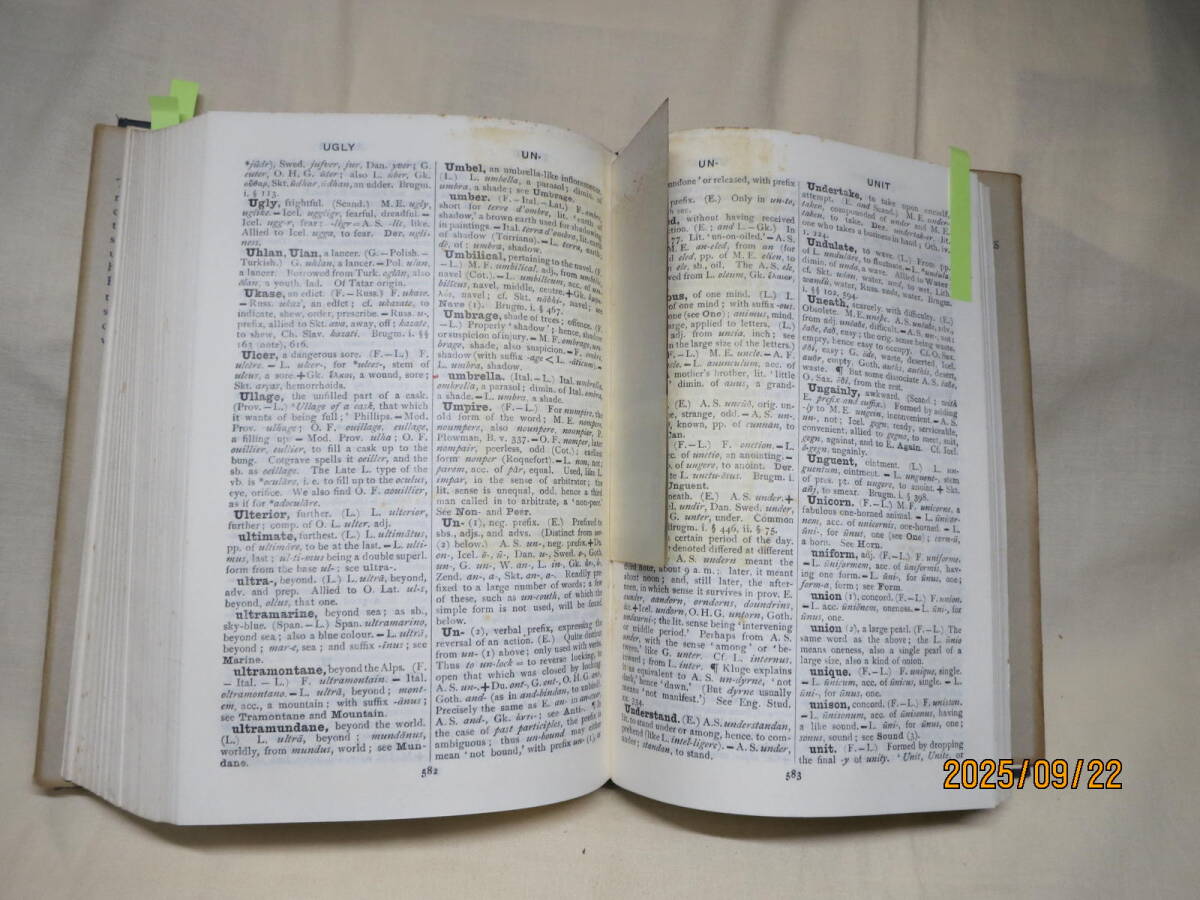 UGLY
*jūdr), Swed. jufver, jur, Dan. yver; G.
euter, O. H. G. ūter; also L. ūber, Gk.
οὖθαρ, Skt. ūdhar, ūdhan, an udder. Brugm.
i. § 113.
Ugly, frightful. (Scand.) M. E. ugly,
uglike. – Icel. uggligr, fearful, dreadful. –
Icel. ugg-r, fear; -ligr = A. S. -lic, like.
Allied to Icel. ugga, to fear. Der. ugli-
ness.
Uhlan, Ulan, a lancer. (G. – Polish. –
Turkish.) G. uhlan, a lancer. – Pol. ulan,
a lancer. Borrowed from Turk. oglān, also
ōlan, a youth, lad. Of Tatar origin.
Ukase, an edict. (F. – Russ.) F. ukase.
– Russ. ukaz', an edict; cf. ukazate, to
indicate, shew, order, prescribe. – Russ. u-,
prefix, allied to Skt. ava, away, off; kazate,
to shew, Ch. Slav. kazati. Brugm. i. §§
163 (note), 616.
Ulcer, a dangerous sore. (F. – L.) F.
ulcère. – L. ulcer-, for *ulces-, stem of
ulcus, a sore. + Gk. ἕλκος, a wound, sore;
Skt. arças, hemorrhoids.
Ullage, the unfilled part of a cask.
(Prov. – L.) 'Ullage of a cask, that which
it wants of being full;' Phillips. – Mod.
Prov. ulhage; O. F. ouillage, eullage,
a filling up. – Mod. Prov. ulha; O. F.
ouillier, eullier, to fill a cask up to the
bung. Cotgrave spells it oeiller, and the
sb. as oeillage. The Late L. type of the
vb. is *oculāre, i. e. to fill up to the oculus,
eye, orifice. We also find O. F. aouillier,
as if for *adoculāre.
Ulterior, further. (L.) L. ulterior,
further; comp. of O. L. ulter, adj.
ultimate, furthest. (L.) L. ultimātus,
pp. of ultimāre, to be at the last. – L. ulti-
mus, last; ul-ti-mus being a double superl.
form from the base ul-; see ultra-.
ultra-, beyond. (L.) L. ultrā, beyond,
adv. and prep. Allied to O. Lat. ul-s,
beyond, olcus, that one.
ultramarine, beyond sea; as sb.,
sky-blue. (Span. – L.) Span. ultramarino,
beyond sea; also a blue colour. – L. ultrā,
beyond; mar-e, sea; and suffix -īnus; see
Marine.
ultramontane, beyond the Alps. (F.
– Ital. – L.) F. ultramontain. – Ital.
oltramontano. – L. ultrā, beyond; mont-
em, acc., a mountain; with suffix -ānus;
see Tramontane and Mountain.
ultramundane, beyond the world.
(L.) L. ultrā, beyond; mundānus,
worldly, from mundus, world; see Mun-
dane.
UN-
Umbel, an umbrella-like inflorescence.
(L.) L. umbella, a parasol; dimin. of
umbra, a shade; see Umbrage.
umber. (F. – Ital. – Lat.) F. ombre,
short for terre d'ombre, lit. 'earth of
shadow,' a brown earth used for shadows
in paintings. – Ital. terra d'ombra, lit. earth
of shadow (Torriano). – L. terra, earth;
dē, of; umbra, shadow.
Umbilical, pertaining to the navel. (F.
– L.) M. F. umbilical, adj., from umbilic,
navel. – L. umbilicum, acc. of um-
bilicus, navel, middle, centre. + Gk.
navel; cf. Skt. nābhi-, navel; see
Nave (1). Brugm. i. § 467.
Umbrage, shade of trees; offence. (F.
– L.) Properly 'shadow'; hence, shadow
or suspicion of injury. – M. F. ombrage, um-
brage, shade, also suspicion. – F. ombre,
shadow (with suffix -age < L. -āticum). –
L. umbra, shadow.
umbrella. (Ital. – L.) Ital. umbrella,
ombrella, a parasol; dimin. of Ital. ombra,
a shade. – L. umbra, a shade.
Umpire. (F. – L.) For numpire, the
old form of the word; M. E. nompere,
noumpere, also nounpere, nounpier, P.
Plowman, B. v. 337. – O. F. nomper, later
nompair, peerless, odd (Cot.); earliest
form nonper (Roquefort). – L. non, not;
parem, acc. of pār, equal. Used, like L.
impar, in the sense of arbitrator; the
lit. sense is unequal, odd, hence a third
man called in to arbitrate, a 'non-peer.'
See Non- and Peer.
Un- (1), neg. prefix. (E.) Prefixed to
sbs., adjs., and advs. (Distinct from un-
(2) below.) A. S. un-, neg. prefix. + Du.
on-, Icel. ō-, ū-, Dan. u-, Swed. o-, Goth.
un-, G. un-, W. an-, L. in-, Gk.
Zend. an-, a-, Skt. an-, a-. Readily pre-
fixed to a large number of words; a few
of these, such as un-couth, of which the
simple form is not used, will be found
below.
Un- (2), verbal prefix, expressing the
reversal of an action. (E.) Quite distinct
from un- (1) above; only used with verbs.
Thus to un-lock = to reverse locking, to
open that which was closed by locking.
A. S. un-. + Du. ont-, G. ent-, O. H. G. ant-,
Goth. and- (as in and-bindan, to unbind).
Precisely the same as E. an- in answer,
A. S. and-, Gk. ἀντι-; see Anti-. ¶ In
the case of past participles, the prefix is
ambiguous; thus un-bound may either
mean 'not bound,' with prefix un- (1), or
582
UN-
undone' or released, with prefix
prefix. (E.) Only in un-to,
without having received
tion. (E.; and L. – Gk.) In
77. Lit. 'un-on-oiled.' – A. S.
M. E. an-eled, from an (for
eled, pp. of M. E. elien, to
ele, sb., oil. The A. S. ele,
wed from L. oleum, Gk.
ous, of one mind. (L.) L.
of one mind; with suffix -ous.
one (see One); animus, mind.
large, applied to letters. (L.)
adj. from uncia, inch; see
the large size of the letters.)
F. – L.) M. E. uncle. – A. F.
le. – L. auunculum, acc. of
mother's brother, lit. 'little
dimin. of auus, a grand-
(E.) A. S. uncūð, orig. un-
e, strange, odd. – A. S. un-,
known, pp. of cunnan, to
Can.
(F. – L.) F. onction. – L.
acc. of unctio, an anointing. –
of ungere, to anoint. Der.
ate L. unctu-ōsus. Brugm.
Unguent.
neath. (E.) A. S. under. +
el. undir, Dan. Swed. under,
G. unter, under. Common
Brugm. i. § 446, ii. § 75.
certain period of the day.
denoted different at different
A. S. undern meant the
third hour, about 9 a. m.; later, it meant
about noon; and, still later, the after-
noon, in which sense it survives in prov. E.
aunder, aandorn, orndorns, doundrins,
&c. + Icel. undorn, O. H. G. untorn, Goth.
undaurni-; the lit. sense being 'intervening
or middle period.' Perhaps from A. S.
under, with the sense 'among' or 'be-
tween,' like G. unter. Cf. L. internus,
inward; from L. inter. ¶ Kluge explains
it as equivalent to A. S. un-dyrne, 'not
dark,' hence 'dawn.' (But dyrne usually
means 'not manifest.') See Eng. Stud.
234.
Understand. (E.) A. S. understandan,
lit. to stand under or among, hence, to com-
prehend (like L. intel-ligere). – A. S. under,
under; standan, to stand.
UNIT
Undertake, to take upon oneself,
attempt. (E. and Scand.) M. E. under-
taken, compounded of under and M. E.
taken, to take. Der. undertak-er, lit.
one who takes a business in hand; Oth. iv.
1. 224.
Undulate, to wave. (L.) From pp.
of L. undulāre, to fluctuate. – L. *undula,
dimin. of unda, a wave. Allied to Water;
cf. Skt. udan, water, und, to wet, Lith.
wandū, water, Russ. voda, water. Brugm.
i. §§ 102, 594.
Uneath, scarcely, with difficulty. (E.)
Obsolete. M. E. uneþe. A. S. unēaðe, adv.,
from adj. unēaðe, difficult. – A. S. un-, not;
ēaðe, ēað, easy; the orig. sense being waste,
empty, hence easy to occupy. Cf. O. Sax.
ōði, easy; G. öde, waste, deserted, Icel.
auðr, empty, Goth. auths, authis, desert,
waste. ¶ But some dissociate A. S. ēaðe,
O. Sax. ōði, from the rest.
Ungainly, awkward. (Scand.; with
E. prefix and suffix.) Formed by adding
-ly to M. E. ungein, inconvenient. – A. S.
un-, not; Icel. gegn, ready, serviceable,
convenient, allied to gegna, to meet, suit,
gegn, against, and to E. Again. Cf. Icel.
ō-gegn, ungainly.
Unguent, ointment. (L.) L. un-
guentum, ointment. – L. unguent-, stem
of pres. pt. of ungere, to anoint. + Skt.
añj, to smear. Brugm. i. § 398.
Unicorn. (F. – L.) M. F. unicorne, a
fabulous one-horned animal. – L. ūnicor-
nem, acc. of ūnicornis, one-horned. – L.
ūni-, for ūnus, one (see One); corn-ū,
a horn. See Horn.
uniform, adj. (F. – L.) F. uniforme.
– L. ūniformem, acc. of ūniformis, hav-
ing one form. – L. ūni-, for ūnus, one;
form-a, form; see Form.
union (1), concord. (F. – L.) F. union.
– L. acc. ūniōnem, oneness. – L. ūni-, for
ūnus, one.
union (2), a large pearl. (F. – L.) The
same word as the above; the L. ūnio
means oneness, also a single pearl of a
large size, also a kind of onion.
unique. (F. – L.) F. unique, single.
– L. ūnicum, acc. of ūnicus, single. – L.
ūni-, for ūnus, one.
unison, concord. (F. – L.) F. unisson.
– L. ūnisonum, acc. of ūnisonus, having
a like sound. – L. ūni-, for ūnus, one;
sonus, sound; see Sound (3).
unit. (F. – L.) Formed by dropping
the final -y of unity. 'Unit, Unite, or
583
2025/09/22